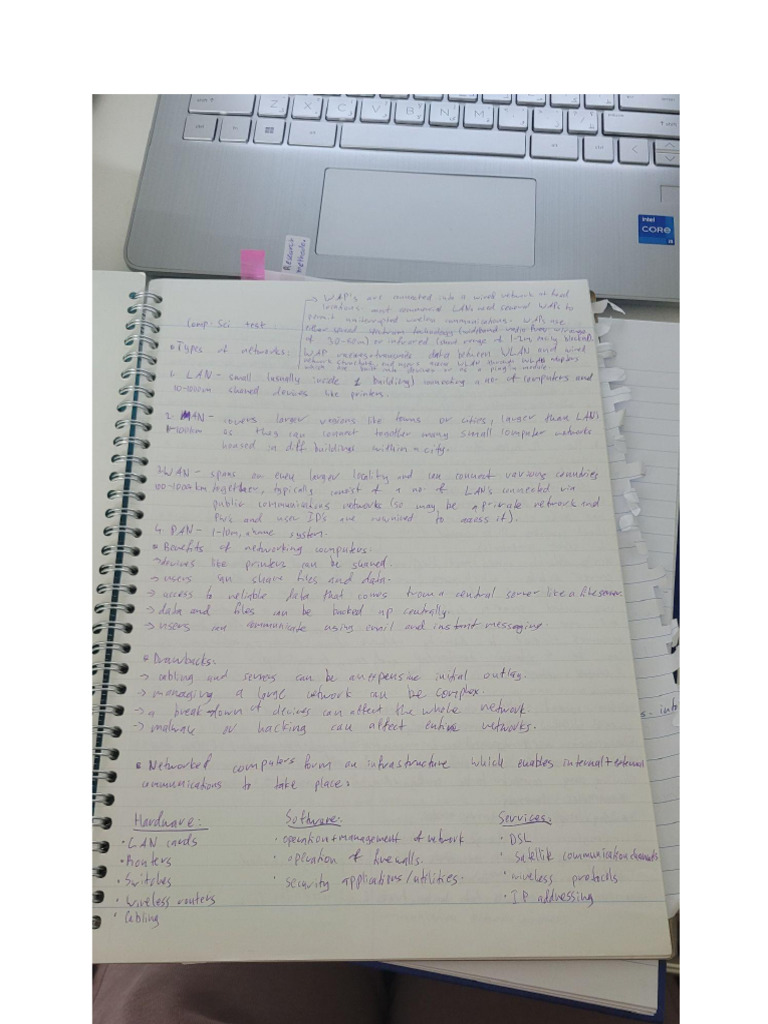 intel
CORE
i5
Z X C V B N M
ctrl fn alt
Research
methods.
→ WAP's are connected into a wired network at fixed
locations. most commercial LANs need several WAPs to
permit uninterrupted wireless communications. WAPs use
either spread spectrum technology (wideband radio
of 30-50m) or infrared (short range of 1-2m easily blocked).
WAP receives + transmits data between WLAN and wired
network structure. end users access WLAN through WLAN adapters
which are built into devices or as a plug in module.
Comp. Sci test
• Types of networks:
1. LAN - small (usually inside 1 building) connecting a no. of computers and
10-1000m shared devices like printers.
2. MAN - covers larger versions like towns or cities, larger than LANs
1-100km as they can connect together many small computer networks
housed in diff buildings within a city.
3. WAN - spans an even larger locality and can connect various countries
100-1000+km together, typically consist of a no. of LAN's connected via
public communications networks (so may be a private network and
PW's and user ID's are required to access it).
4. PAN - 1-10m, a home system.
• Benefits of networking computers:
→ devices like printers can be shared.
→ users can share files and data.
→ access to reliable data that comes from a central server like a file server.
→ data and files can be backed up centrally.
→ users can communicate using email and instant messaging.
• Drawbacks:
→ cabling and servers can be an expensive initial outlay.
→ managing a large network can be complex.
→ a break down of devices can affect the whole network.
→ malware or hacking can affect entire networks.
• Networked computers form an infrastructure which enables internal + external
communications to take place:
Hardware: Software: Services:
• LAN cards • operation + management of network • DSL
• Routers • operation of firewalls. • satellite communication channels
• Switches • security applications/utilities. • wireless protocols
• wireless routers • IP addressing
• Cabling